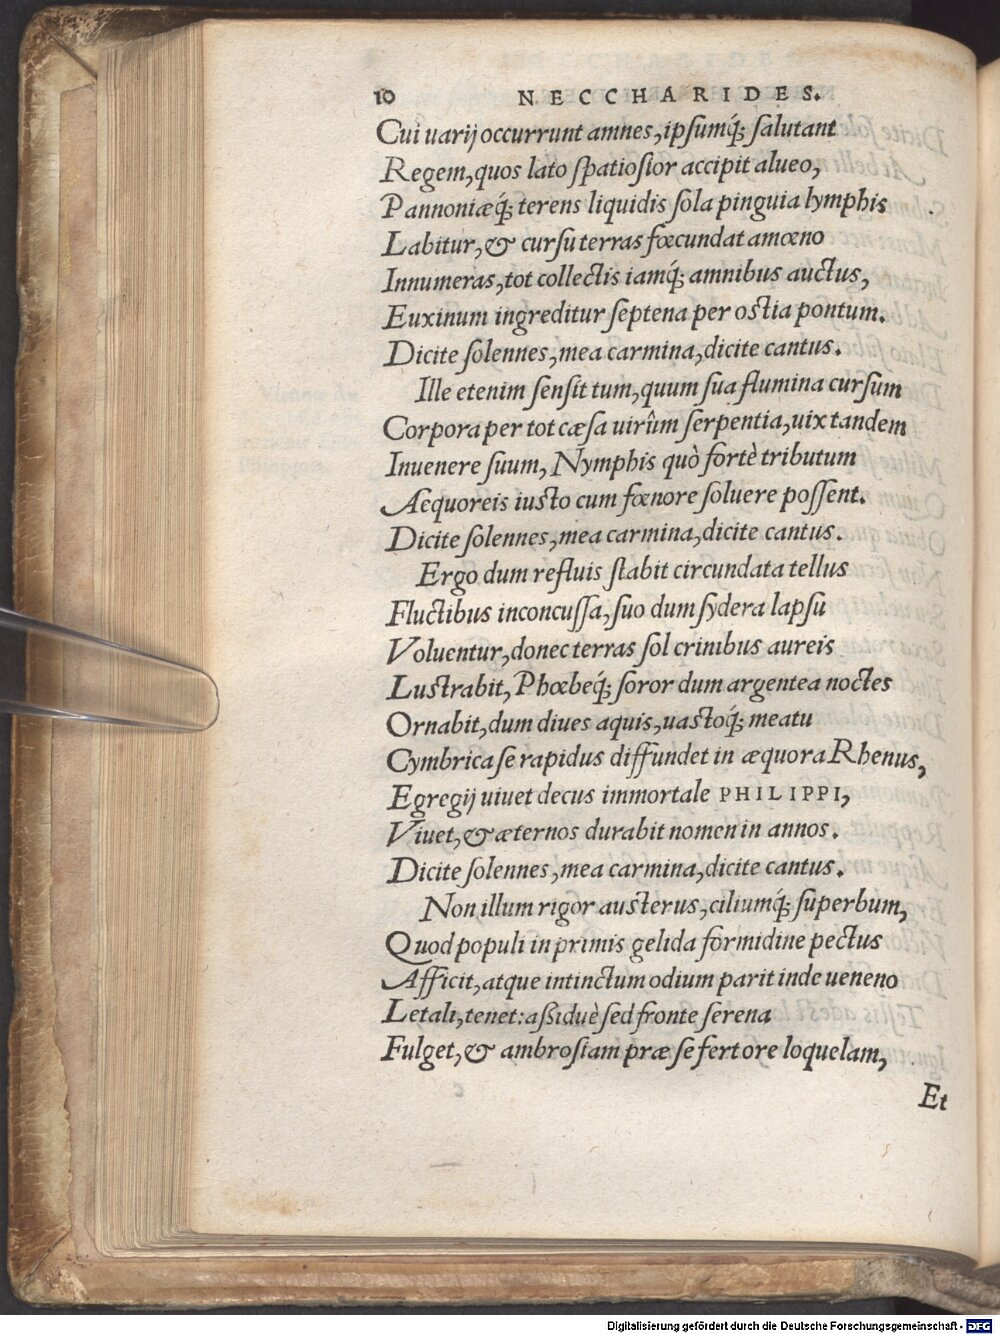 10 NECCHARIDES.
Cui uarij occurrunt amnes, ipsumq́; salutant
Regem, quos lato spatiosior accipit alueo,
Pannoniæq́; terens liquidis sola pinguia lymphis
Labitur, & cursu terras fœcundat amœno
Innumeras, tot collectis iamq́; amnibus auctus,
Euxinum ingreditur septena per ostia pontum.
Dicite solennes, mea carmina, dicite cantus.
Ille etenim sensit tum, quum sua flumina cursum
Corpora per tot cæsa uirûm serpentia, uix tandem
Inuenere suum, Nymphis quò fortè tributum
Aequoreis iusto cum fœnore soluere possent.
Dicite solennes, mea carmina, dicite cantus.
Ergo dum refluis stabit circundata tellus
Fluctibus inconcussa, suo dum sydera lapsu
Voluentur, donec terras sol crinibus aureis
Lustrabit, Phœbeq́; soror dum argentea noctes
Ornabit, dum diues aquis, uastoq́; meatu
Cymbrica se rapidus diffundet in æquora Rhenus,
Egregij uiuet decus immortale PHILIPPI,
Viuet, & æternos durabit nomen in annos.
Dicite solennes, mea carmina, dicite cantus.
Non illum rigor austerus, ciliumq́; superbum,
Quod populi in primis gelida formidine pectus
Afficit, atque intinctum odium parit inde ueneno
Letali, tenet: aßiduè sed fronte serena
Fulget, & ambrosiam præ se fert ore loquelam,
Et
Digitalisierung gefördert durch die Deutsche Forschungsgemeinschaft - DFG